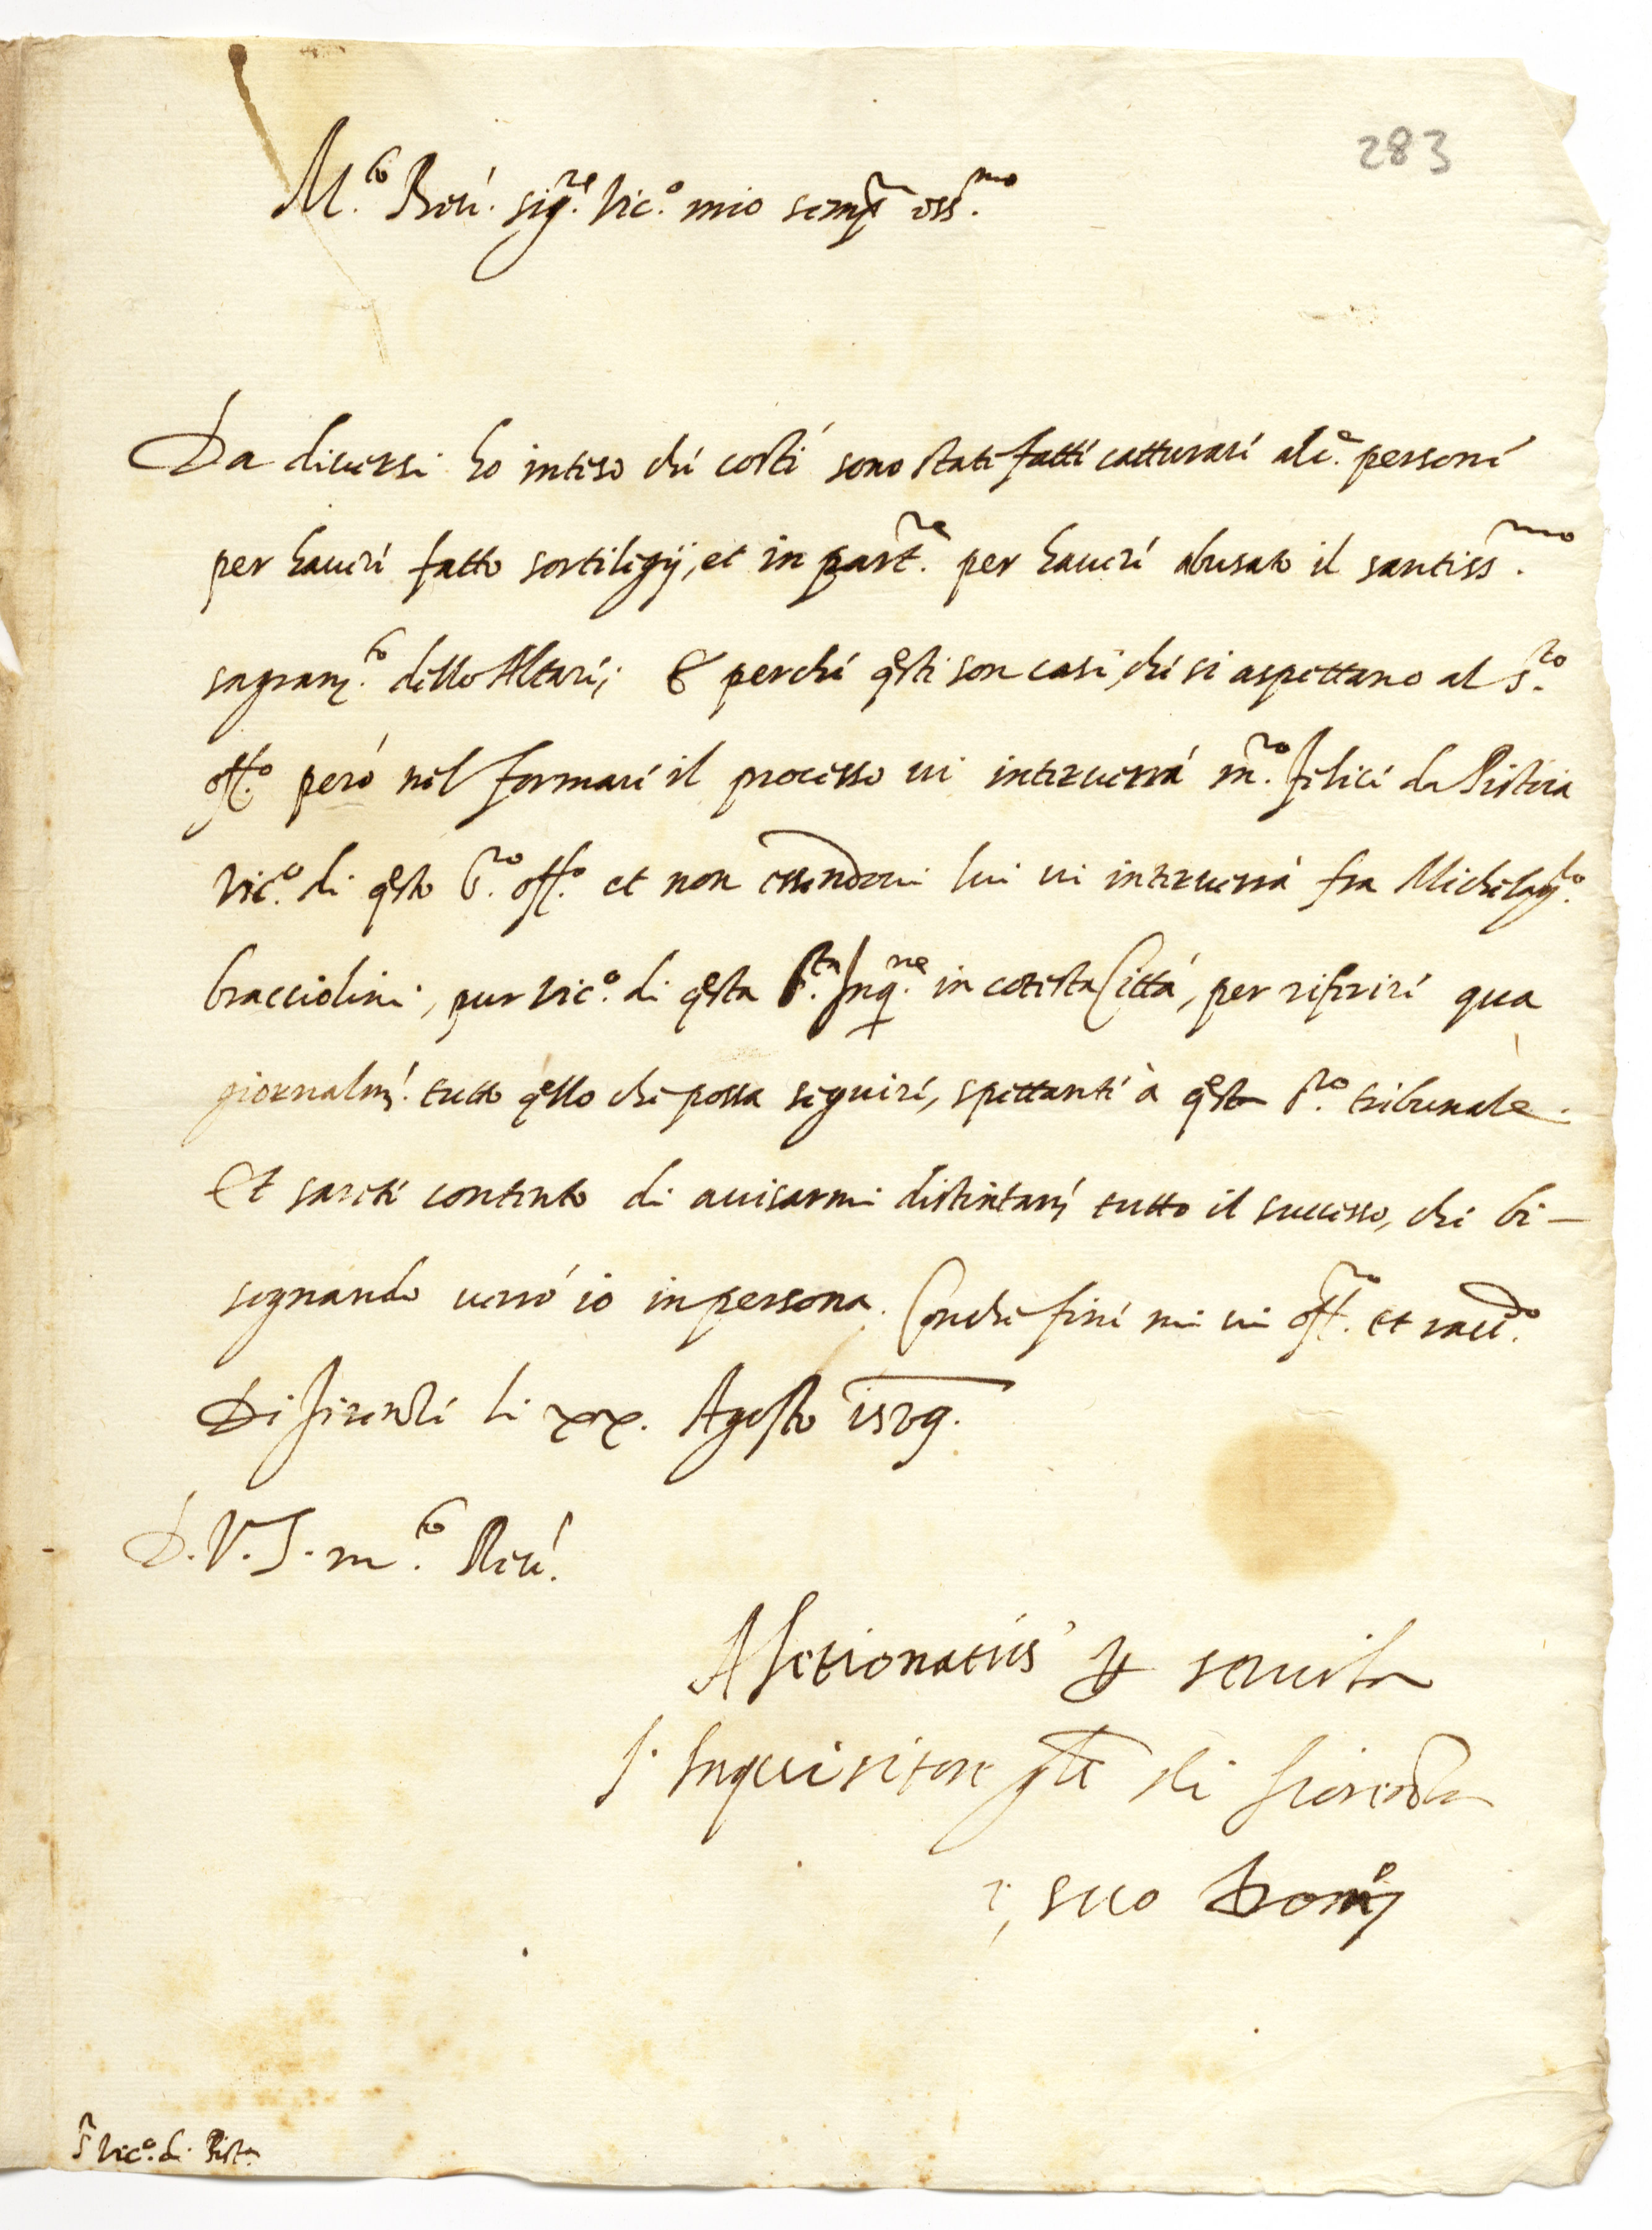 283
M.to Rev. sig.re Vic.o mio semp oss.mo
Da diversi ho inteso che costi sono stati fatti catturare alc.e persone
per havere fatto sortilegij, et in part.re per havere abusato il santiss.mo
sagram.to dello Altare; & perche qsti son casi, che si aspettano al s.to
off.o però nel formare il processo vi interverrà m.ro felice da Pistoia
Vic.o di qsto S.to off.o et non essendovi lui vi interverrà fra Michelag.lo
bracciolini, pur vic.o di qsta S.ta Inq.ne in cotesta Città, per riferire qua
giornalm. tutto qllo che possa seguire, spettante à qsto S.to tribunale.
Et sarete contento di avisarmi distintam tutto il successo, che bi-
sognando verrò io in persona. Con che fine mi vi off.ro et racc.do
Di firenze li xx. Agosto
D. V. S. m.to Rev.
Afetionatiss
l'Inquisitore gle di fiorenza
suo
S Vic.o di Pist.a